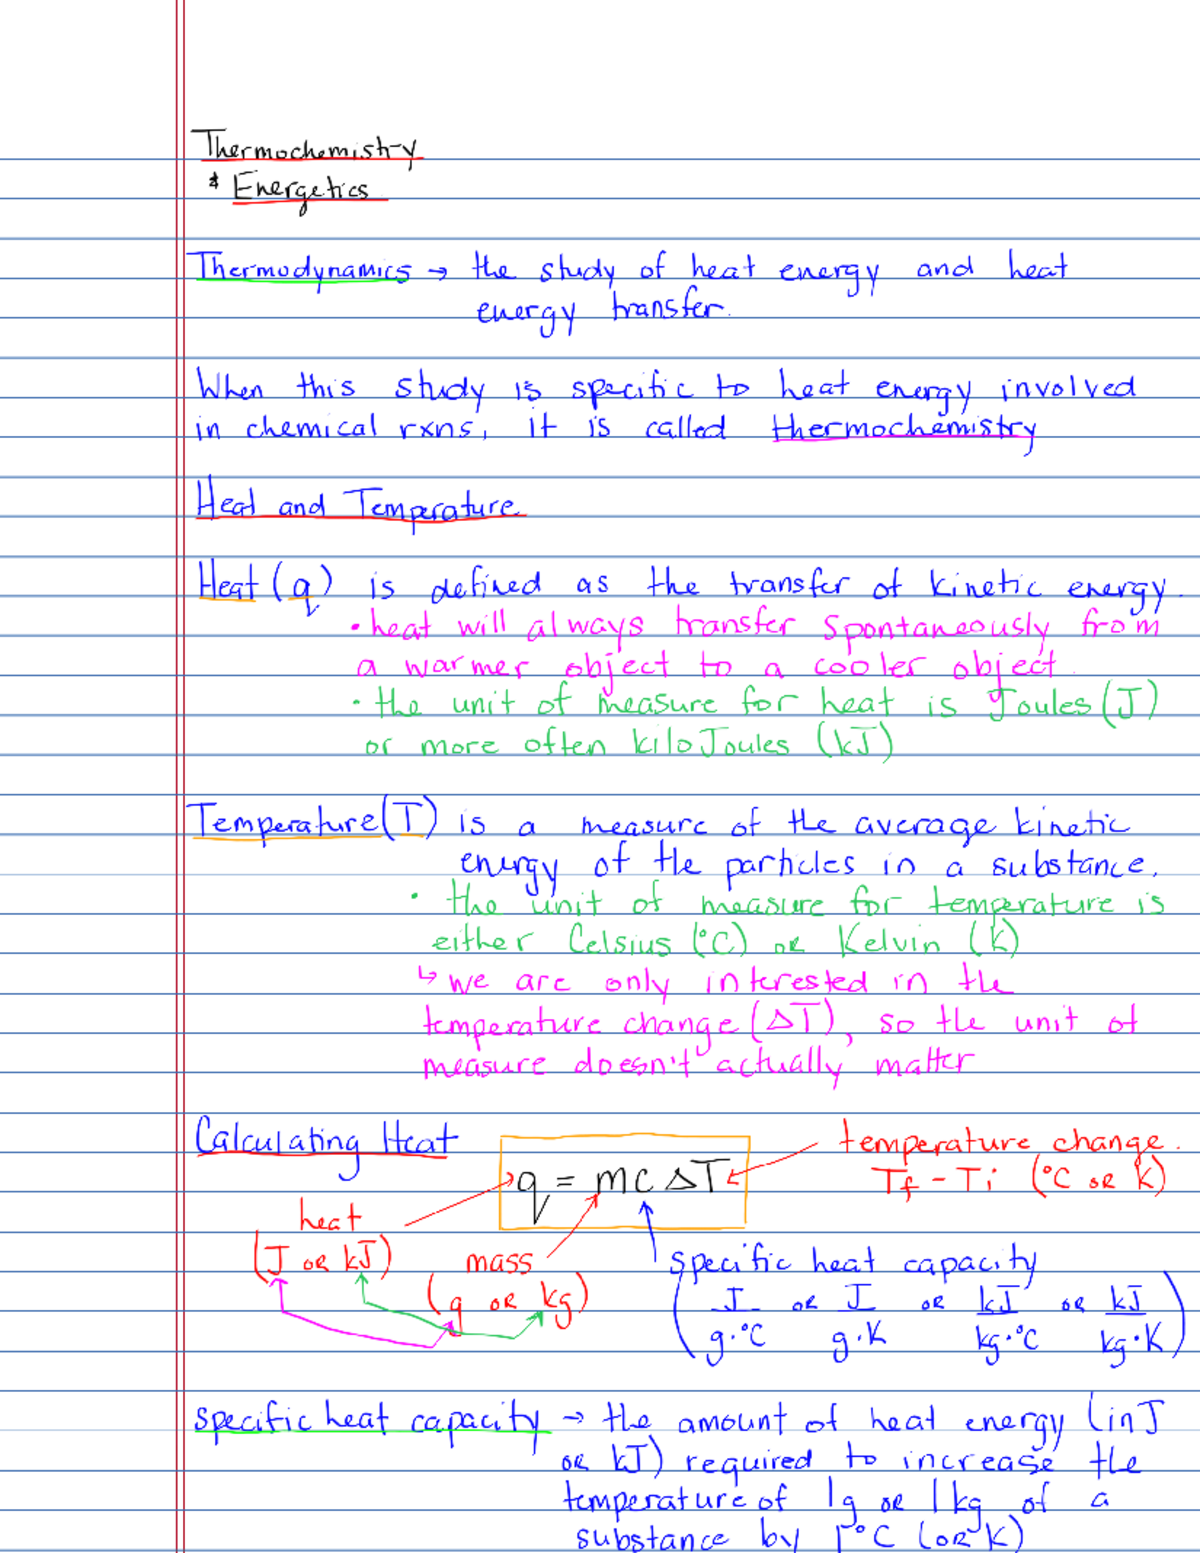 Thermochemistry
& Energetics
Thermodynamics → the study of heat energy and heat
energy transfer.
When this study is specific to heat energy involved
in chemical rxns, it is called thermochemistry
Heat and Temperature
Heat (q) is defined as the transfer of kinetic energy.
• heat will always transfer spontaneously from
a warmer object to a cooler object.
• the unit of measure for heat is Joules (J)
or more often kiloJoules (kJ)
Temperature (T) is a measure of the average kinetic
energy of the particles in a substance.
• the unit of measure for temperature is
either Celsius (°C) or Kelvin (K)
↳ we are only interested in the
temperature change (ΔT), so the unit of
measure doesn't actually matter
Calculating Heat
q = mcΔT
temperature change.
Tf - Ti (°C or K)
heat
(J or kJ)
mass
(g or kg)
specific heat capacity
(J/g·°C or J/g·K or kJ/kg·°C or kJ/kg·K)
specific heat capacity → the amount of heat energy (in J
or kJ) required to increase the
temperature of 1g or 1kg of a
substance by 1°C (or K)